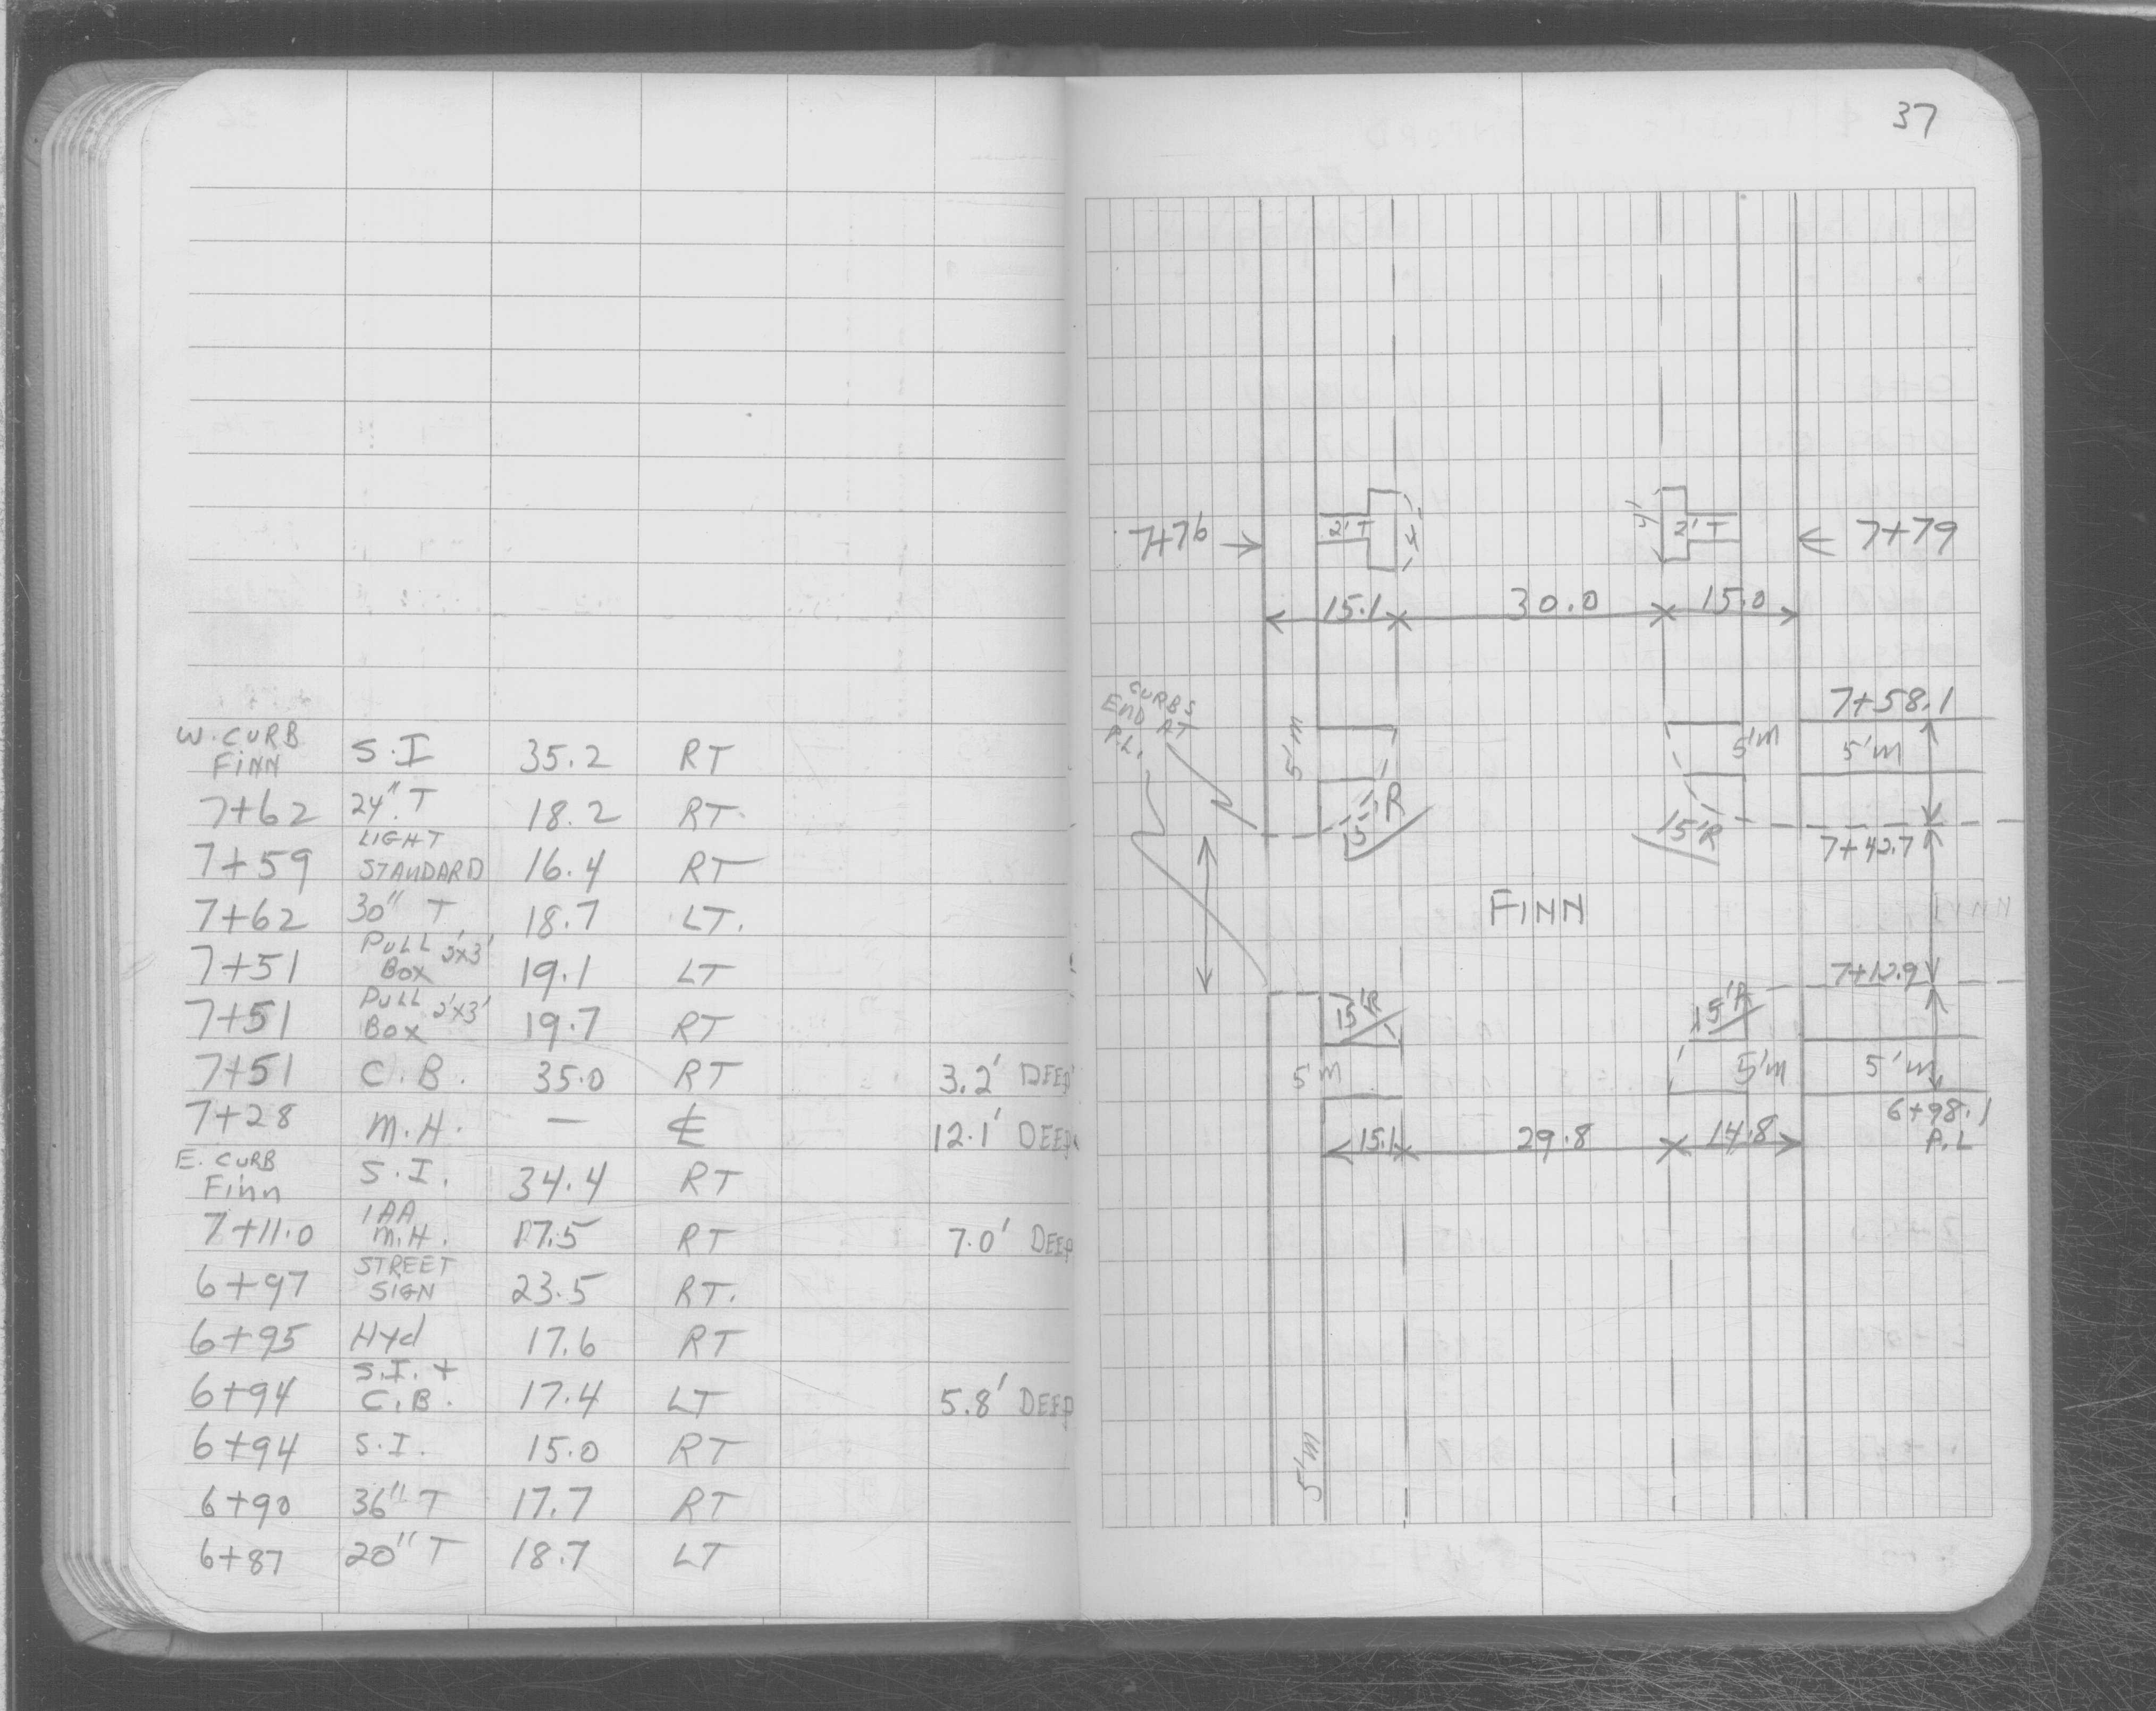 37
W. CURB FINN S.I 35.2 RT
7+62 24" T 18.2 RT.
7+59 LIGHT STANDARD 16.4 RT
7+62 30" T 18.7 LT.
7+51 PULL BOX 2'x3' 19.1 LT
7+51 PULL BOX 2'x3' 19.7 RT
7+51 C.B. 35.0 RT 3.2' DEEP
7+28 M.H. — ℄ 12.1' DEEP
E. CURB Finn S.I. 34.4 RT
7+11.0 M.H. 17.5 RT 7.0' DEEP
6+97 STREET SIGN 23.5 RT.
6+95 Hyd 17.6 RT
6+94 S.I. + C.B. 17.4 LT 5.8' DEEP
6+94 S.I. 15.0 RT
6+90 36" T 17.7 RT
6+87 20" T 18.7 LT
7+76 2' T 4' 4' 2' T 7+79
15.1 30.0 15.0
CURBS
END AT
P.L.
7+58.1
5'm 5'm 5'm
15'R 15'R
7+42.7
FINN
7+12.9
15'R 15'R
5'm 5'm 5'm
6+98.1
P.L
15.1 29.8 14.8
5'm